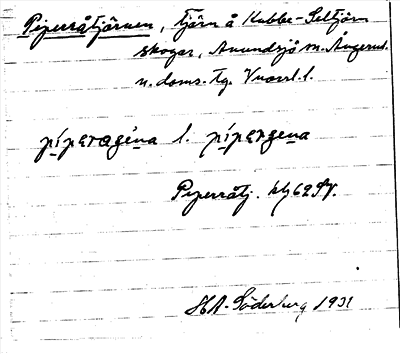 Piperråtjärnen, tjärn å Kubbe-Seltjärn
skogar, Anundsjö sn. Ångerml.
n. doms. tg. Vnorrl. l.
pìperagéna l. pìpergena
Piperråtj. blg 62 SV.
HA. Söderberg 1931